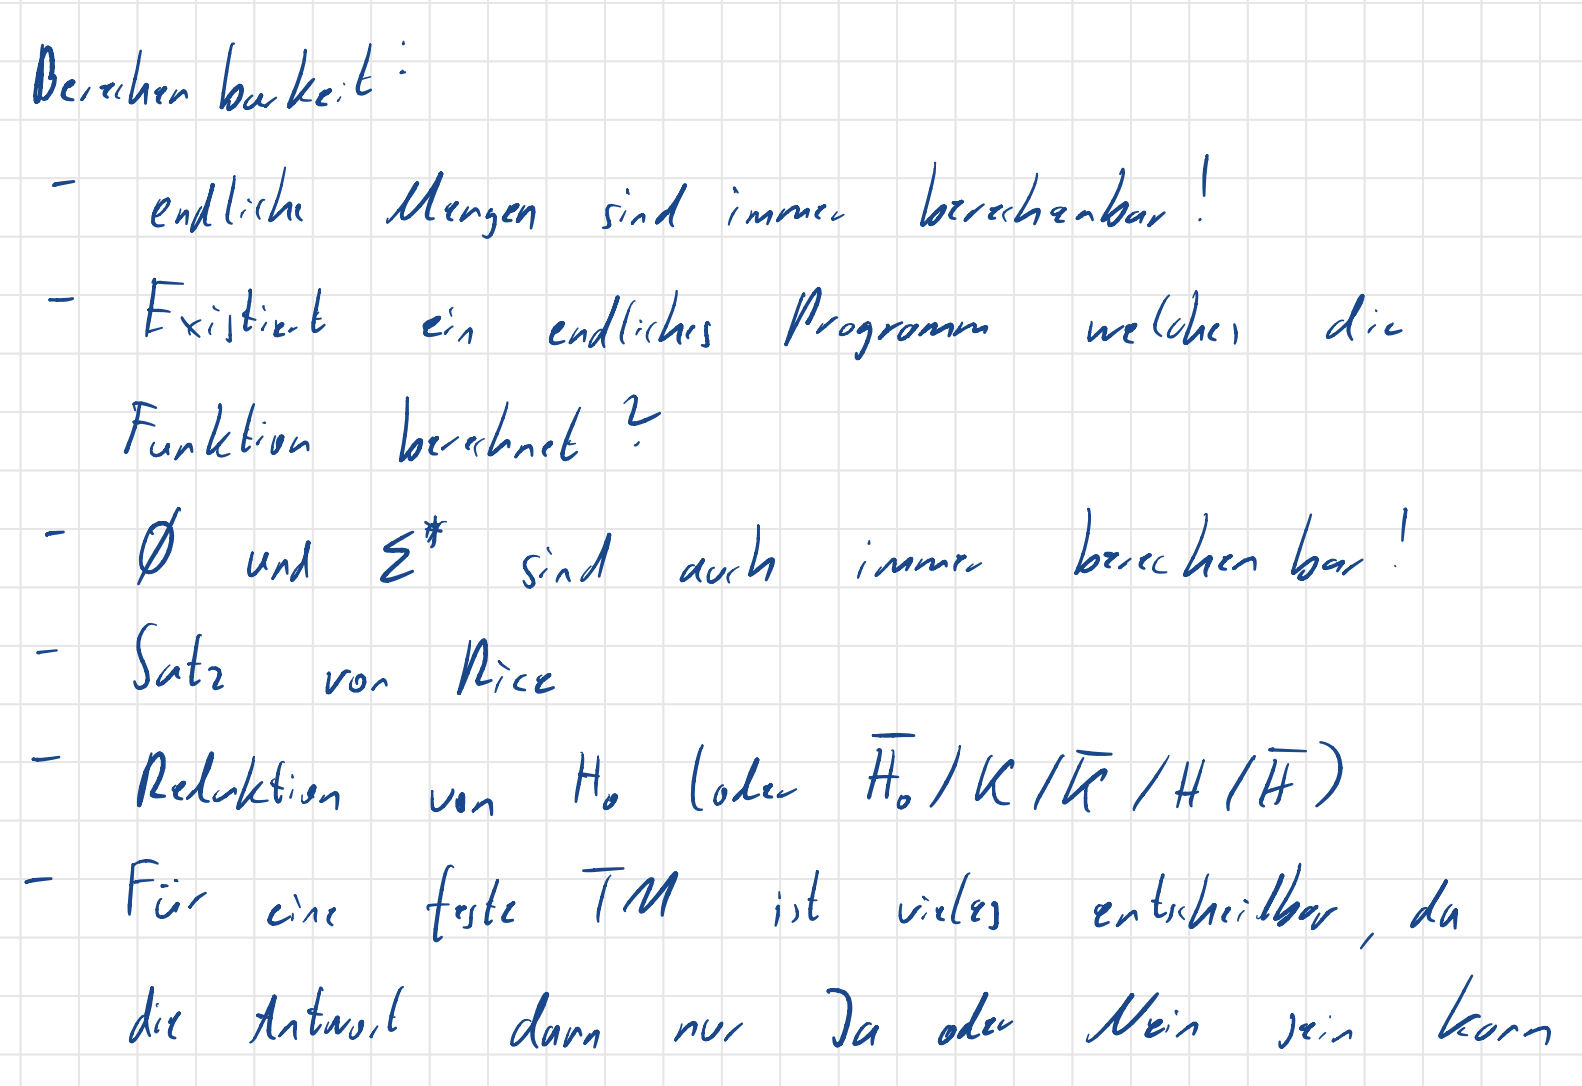 Berechenbarkeit:
- endliche Mengen sind immer berechenbar!
- Existiert ein endliches Programm welches die
Funktion berechnet?
- Ø und Σ* sind auch immer berechenbar!
- Satz von Rice
- Reduktion von H₀ (oder H̅₀/K/K̅/H/H̅)
- Für eine feste TM ist vieles entscheidbar, da
die Antwort dann nur Ja oder Nein sein kann